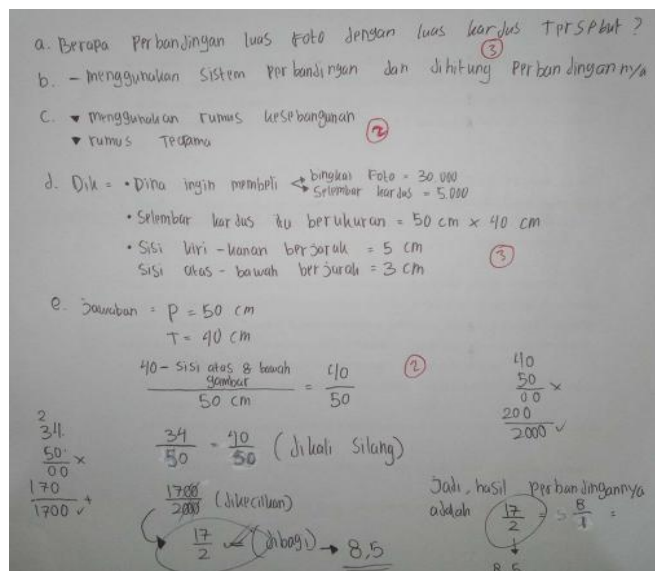 a. Berapa perbandingan luas foto dengan luas kardus tersebut?
3
b. - menggunakan sistem perbandingan dan dihitung perbandingannya
c. ▾ menggunakan rumus kesebangunan
2
▾ rumus
d. Dik = • Dina ingin membeli bingkai Foto = 30.000
Selembar kardus = 5.000
• Selembar kardus itu berukuran = 50 cm x 40 cm
• Sisi kiri - kanan berjarak = 5 cm
3
Sisi atas - bawah berjarak = 3 cm
e. Jawaban = P = 50 cm
T = 40 cm
40 - sisi atas & bawah gambar / 50 cm = 40 / 50
2
40
50 x
00
200
2000 ✓
2
34
50 x
00
170 +
1700 ✓
34 / 50 = 40 / 50 (dikali silang)
1700 / 2000 (dikecilkan)
17 / 2 (dibagi) → 8,5
Jadi, hasil perbandingannya
adalah 17 / 2 = 8 / 1 =
8,5